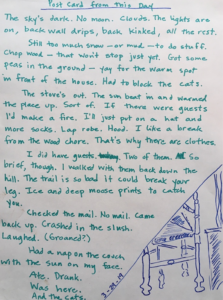 Post Card from This Day
The sky's dark. No moon. Clouds. The lights are
on, back wall drips, back kinked, all the rest.
Still too much snow—or mud—to do stuff.
Chop wood—that won't stop just yet. Got some
peas in the ground—yay for the warm spot
in front of the house. Had to block the cats.
The stove's out. The sun beat in and warmed
the place up. Sort of. If there were guests
I'd make a fire. I'll just put on a hat and
more socks. Lap robe. Hood. I like a break
from the wood chore. That's why there are clothes.
I did have guests. Two of them. So
brief, though. I walked with them back down the
hill. The trail is so bad it could break your
leg. Ice and deep moose prints to catch
you.
Checked the mail. No mail. Came
back up. Crashed in the slush.
Laughed. (Groaned?)
Had a nap on the couch
with the sun on my face.
Ate. Drank.
Was here.
And the cats.